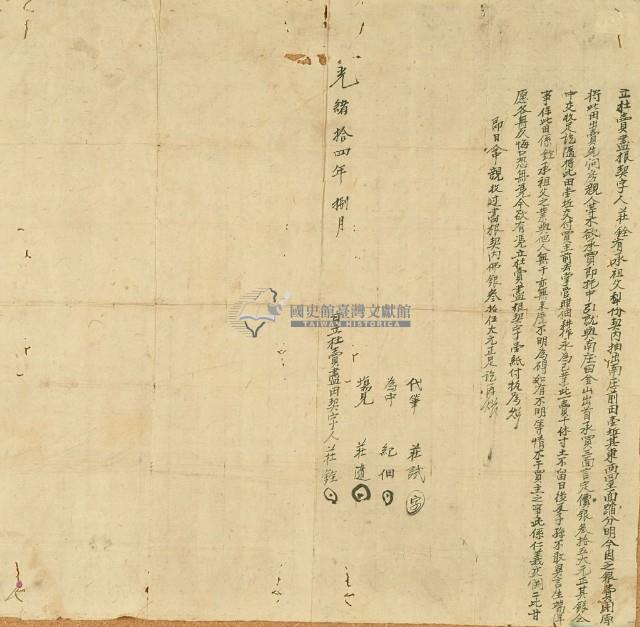 立杜賣盡根契字人莊銓有承祖父䦰份契內抽出南庄前田壹坵其東西四至面踏分明今因乏銀費用愿
將此田出賣先問房親人等不欲承買即托中引就與南庄田金山出首承買三面言定價銀叁拾五大元正其銀仝
中交收足訖隨將此田壹坵交付買主前去掌管瞨佃耕作永為己業此賣千休寸土不留日後子孫不敢異言生端
等情此田係銓承祖父之業與他人無干亦無來歷不明為碍如有不明等情不干買主之事此係仁義交関二比甘
愿各無反悔口恐無憑今欲有憑立杜賣盡根契字壹紙付执為炤
即日仝中親收過盡根契內佛銀叁拾伍大元正足訖再炤
代筆 莊試
為中 紀佃
塲見 莊道
日立杜賣盡田契字人莊銓
光緒拾四年 捌月
國史館臺灣文獻館
TAIWAN HISTORICA